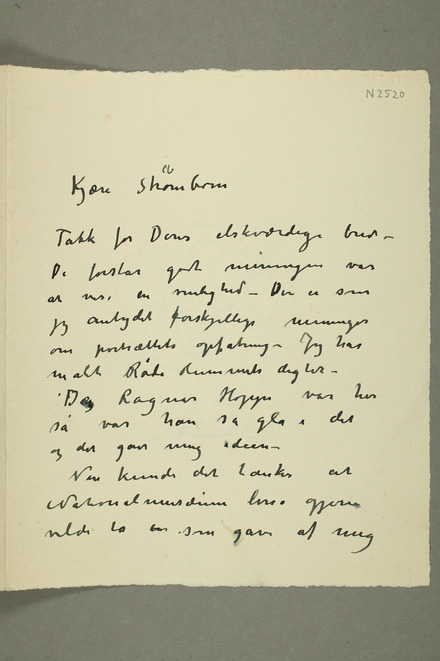 N 2520
Kjære Strömbom
Takk for Deres elskværdige brev –
De forstår godt meningen var
at vise en venlighed – Der er som
jeg antydet forskjellige meninger
om portrættets opfatning – Jeg har
malt Røde Rummets digter –
Da Ragnar Hoppe var her
så var han så gla i det
og det gav mig ideen –
Nu kunde det tænkes at
Nationalmuseum ikke gjerne
vilde ta en som gave af mig